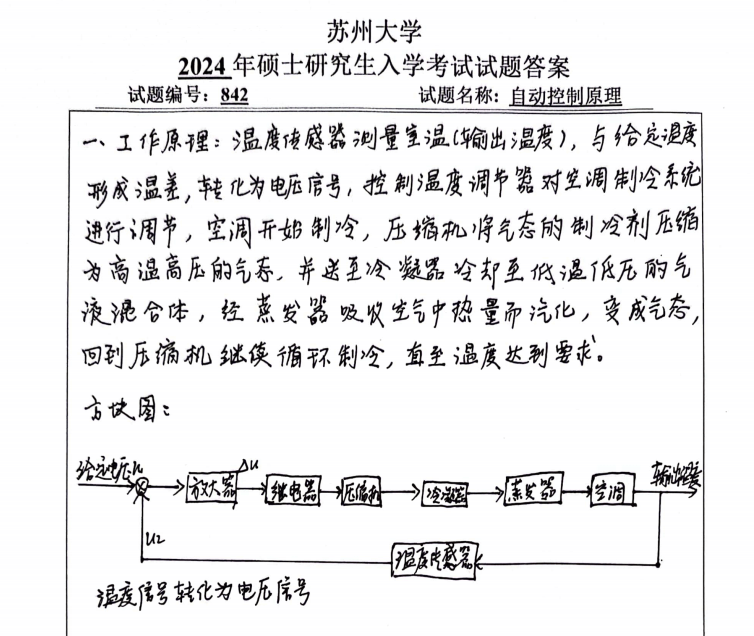 苏州大学
2024 年硕士研究生入学考试试题答案
试题编号：842 试题名称：自动控制原理
一、工作原理：温度传感器测量室温(输出温度)，与给定温度
形成温差，转化为电压信号，控制温度调节器对空调制冷系统
进行调节，空调开始制冷，压缩机将气态的制冷剂压缩
为高温高压的气态，并送至冷凝器冷却至低温低压的气
液混合体，经蒸发器吸收空气中热量而汽化，变成气态，
回到压缩机继续循环制冷，直至温度达到要求。
方块图：
给定电压u 放大器 Δu 继电器 压缩机 冷凝器 蒸发器 空调
u2 温度传感器
温度信号转化为电压信号